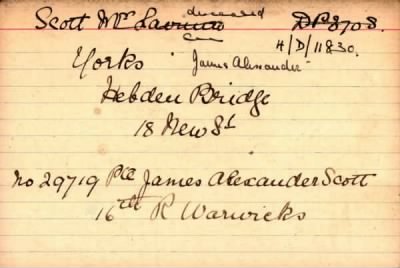 Scott Mrs deceased DP8708.
H/D/11830.
Yorks James Alexander
Hebden Bridge
18 New St
No 29719 Pte James Alexander Scott
16th R Warwicks